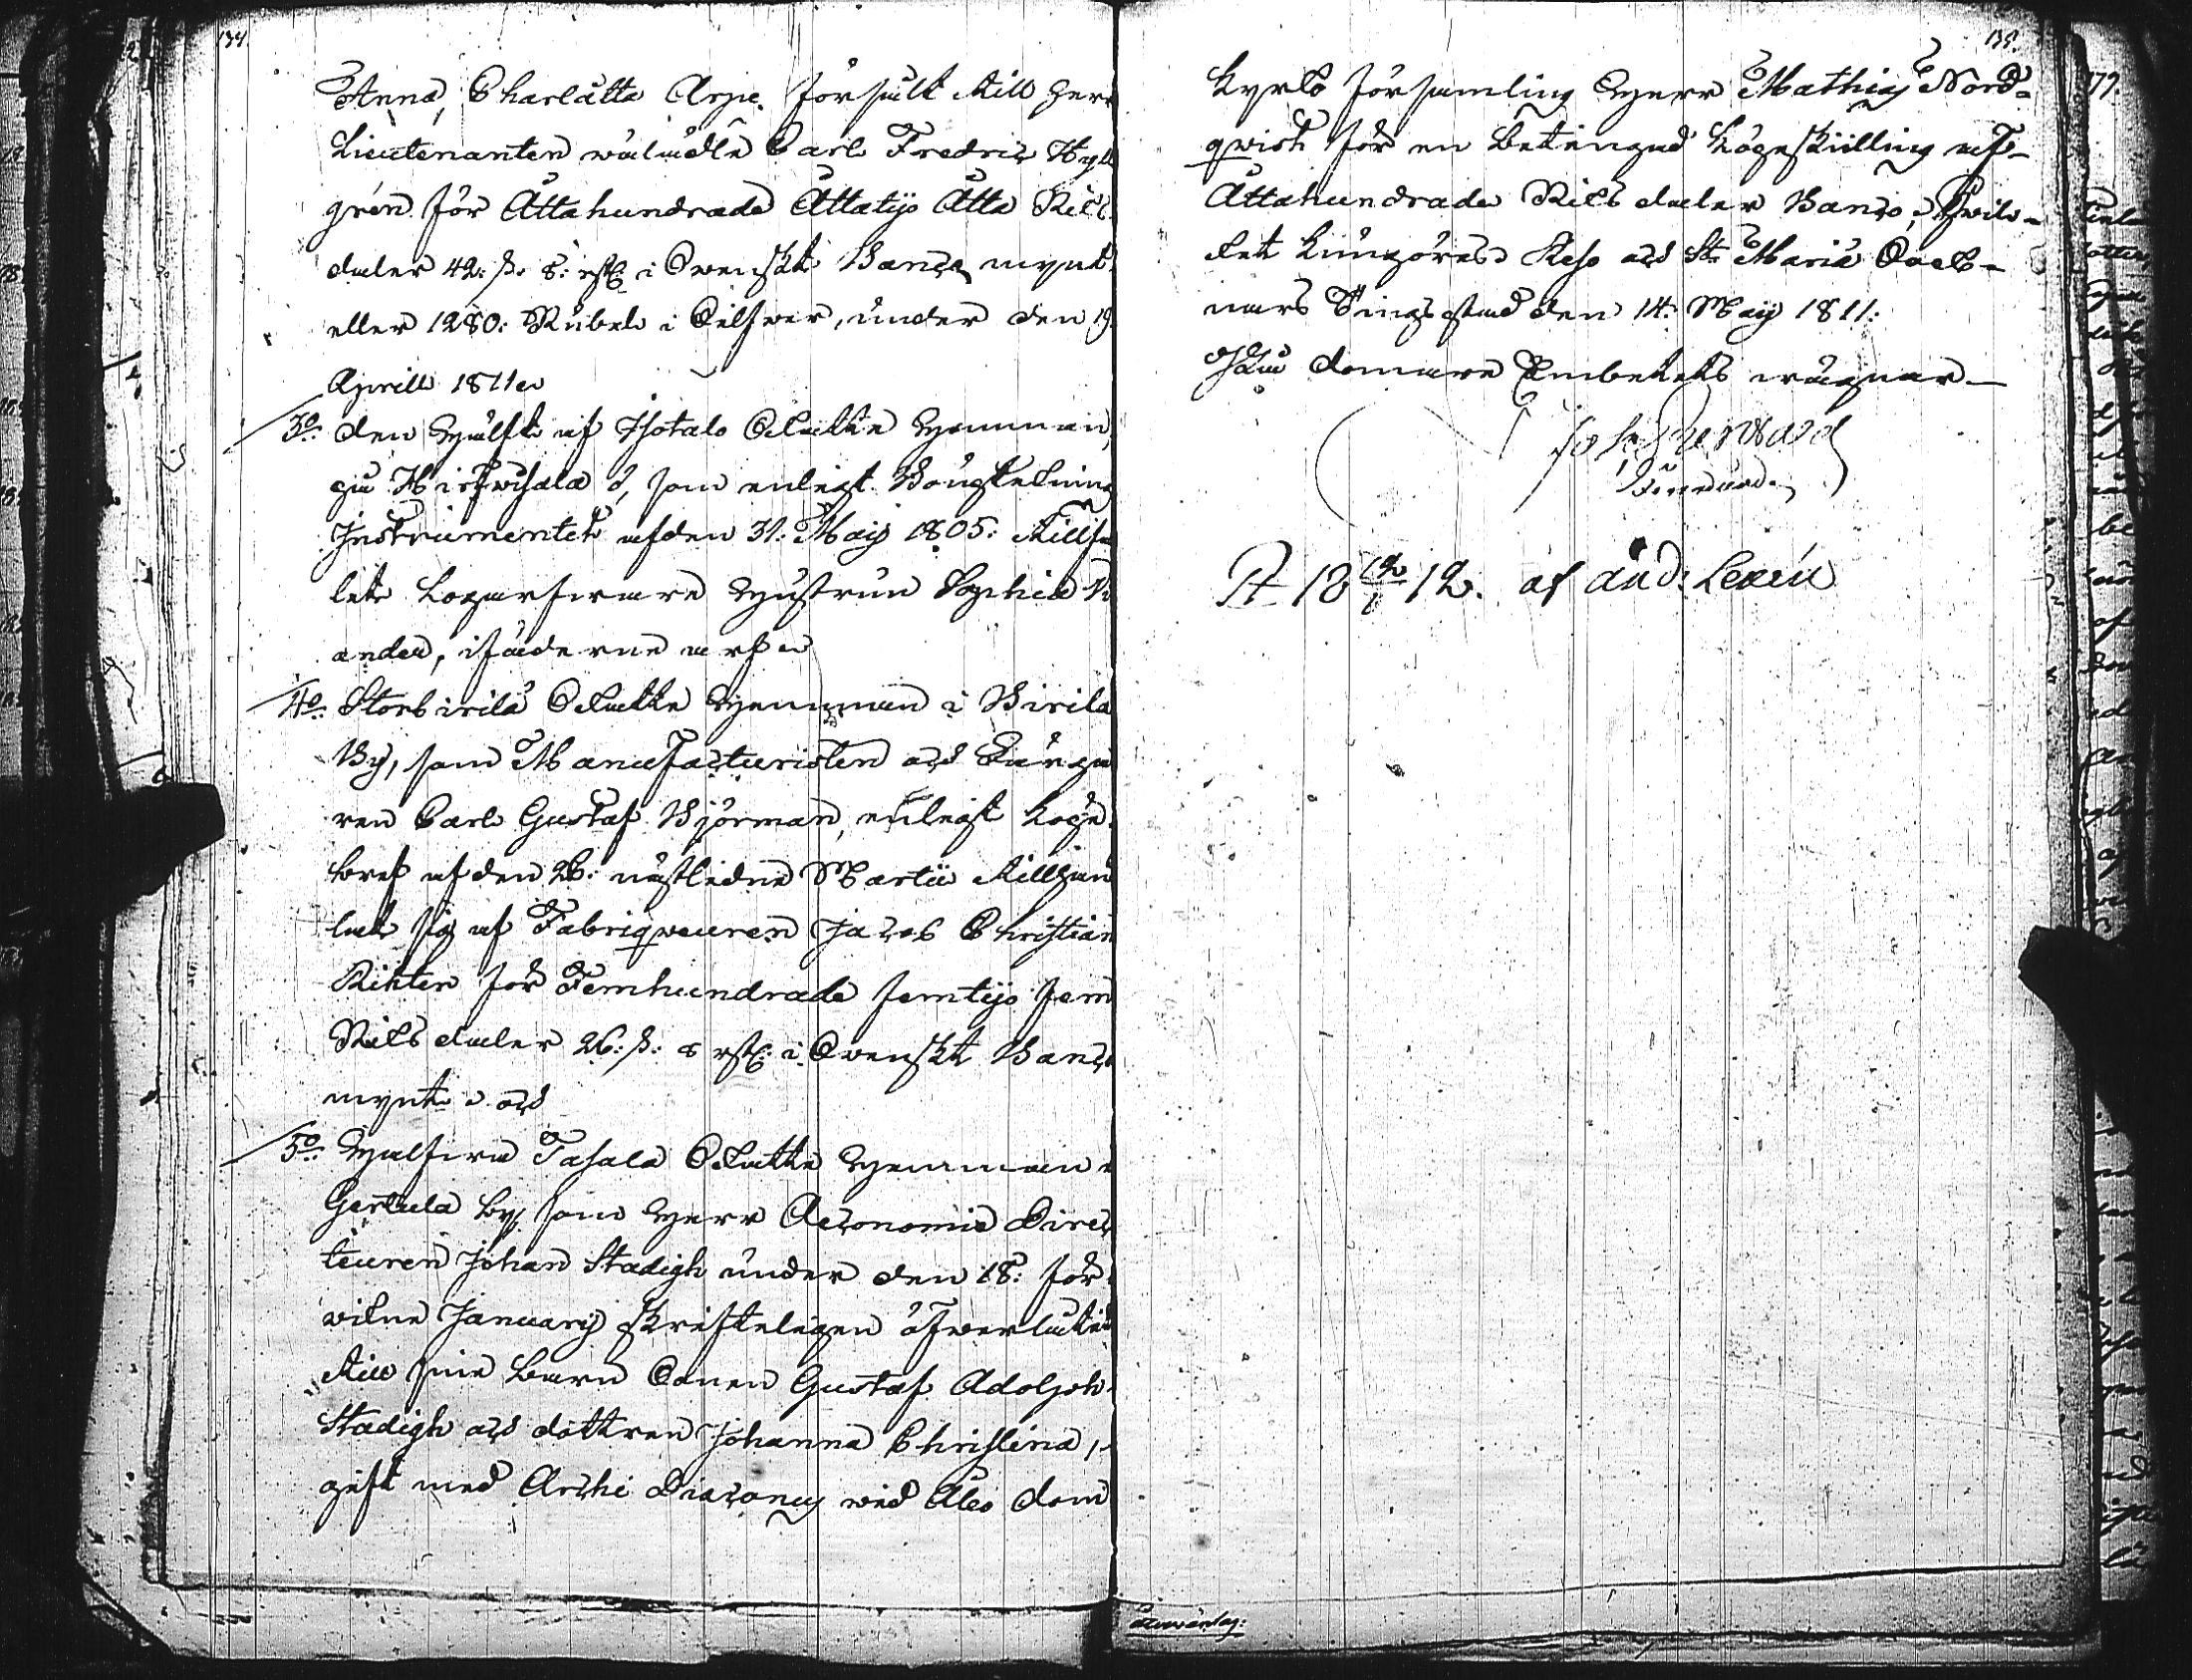 134.
Anna, Charlotta Arpe försålt till Herr
Lieutenanten wälädle Carl Fredric Hyll
grén för Åttahundrade Åttatijo Åtta Riks
daler 42: s. 8: rst: i Swenskt Banco mynt
eller 1280: Rubel i Silfwer, under den 19.
Aprill 1811.
3o. den Hälft af Hotala Skatte Hemman,
som enligt Bouptekning
Instrumentet af den 31. Maij 1805. tillfal
lit Hustrun Sophia
andes, i fäderne arf
4o. Storbirila Skatte Hemman i Birila
By, som Manufacturisten och Färga
ren Carl Gustaf Björman, enligt Köpe
bref af den 26: nästledne Martii tillhan
lat sig af Fabriqueuren Jacob Christian
Rihter för Femhundrade femtijo fem
Riksdaler 26: s: 8 rst: i Swenskt Banco
mynt och
5o. Halfwa Tasala Skatte Hemman
Gertula by, som Herr Oeconomie Direc
teuren Johan Stadigh under den 18: för
wikne January skrifteligen öfwerlåtit
till sine barn Sonen Gustaf Adolph
Stadigh och dottren Johanna Christina,
gift med Archi Diaconus wid Åbo dom
135.
kyrko församling Herr Mathias Nord-
qwist för en betingad Köpeskilling af
Åttahundrade Riksdaler Banco; Hwil-
ket kungöres. Keso och St. Mariæ Sock-
nars Tingsstad den 14. Maij 1811.
På Domare Embetets wägnar
Joh.
P 18 12/1 12. af And: Lexén